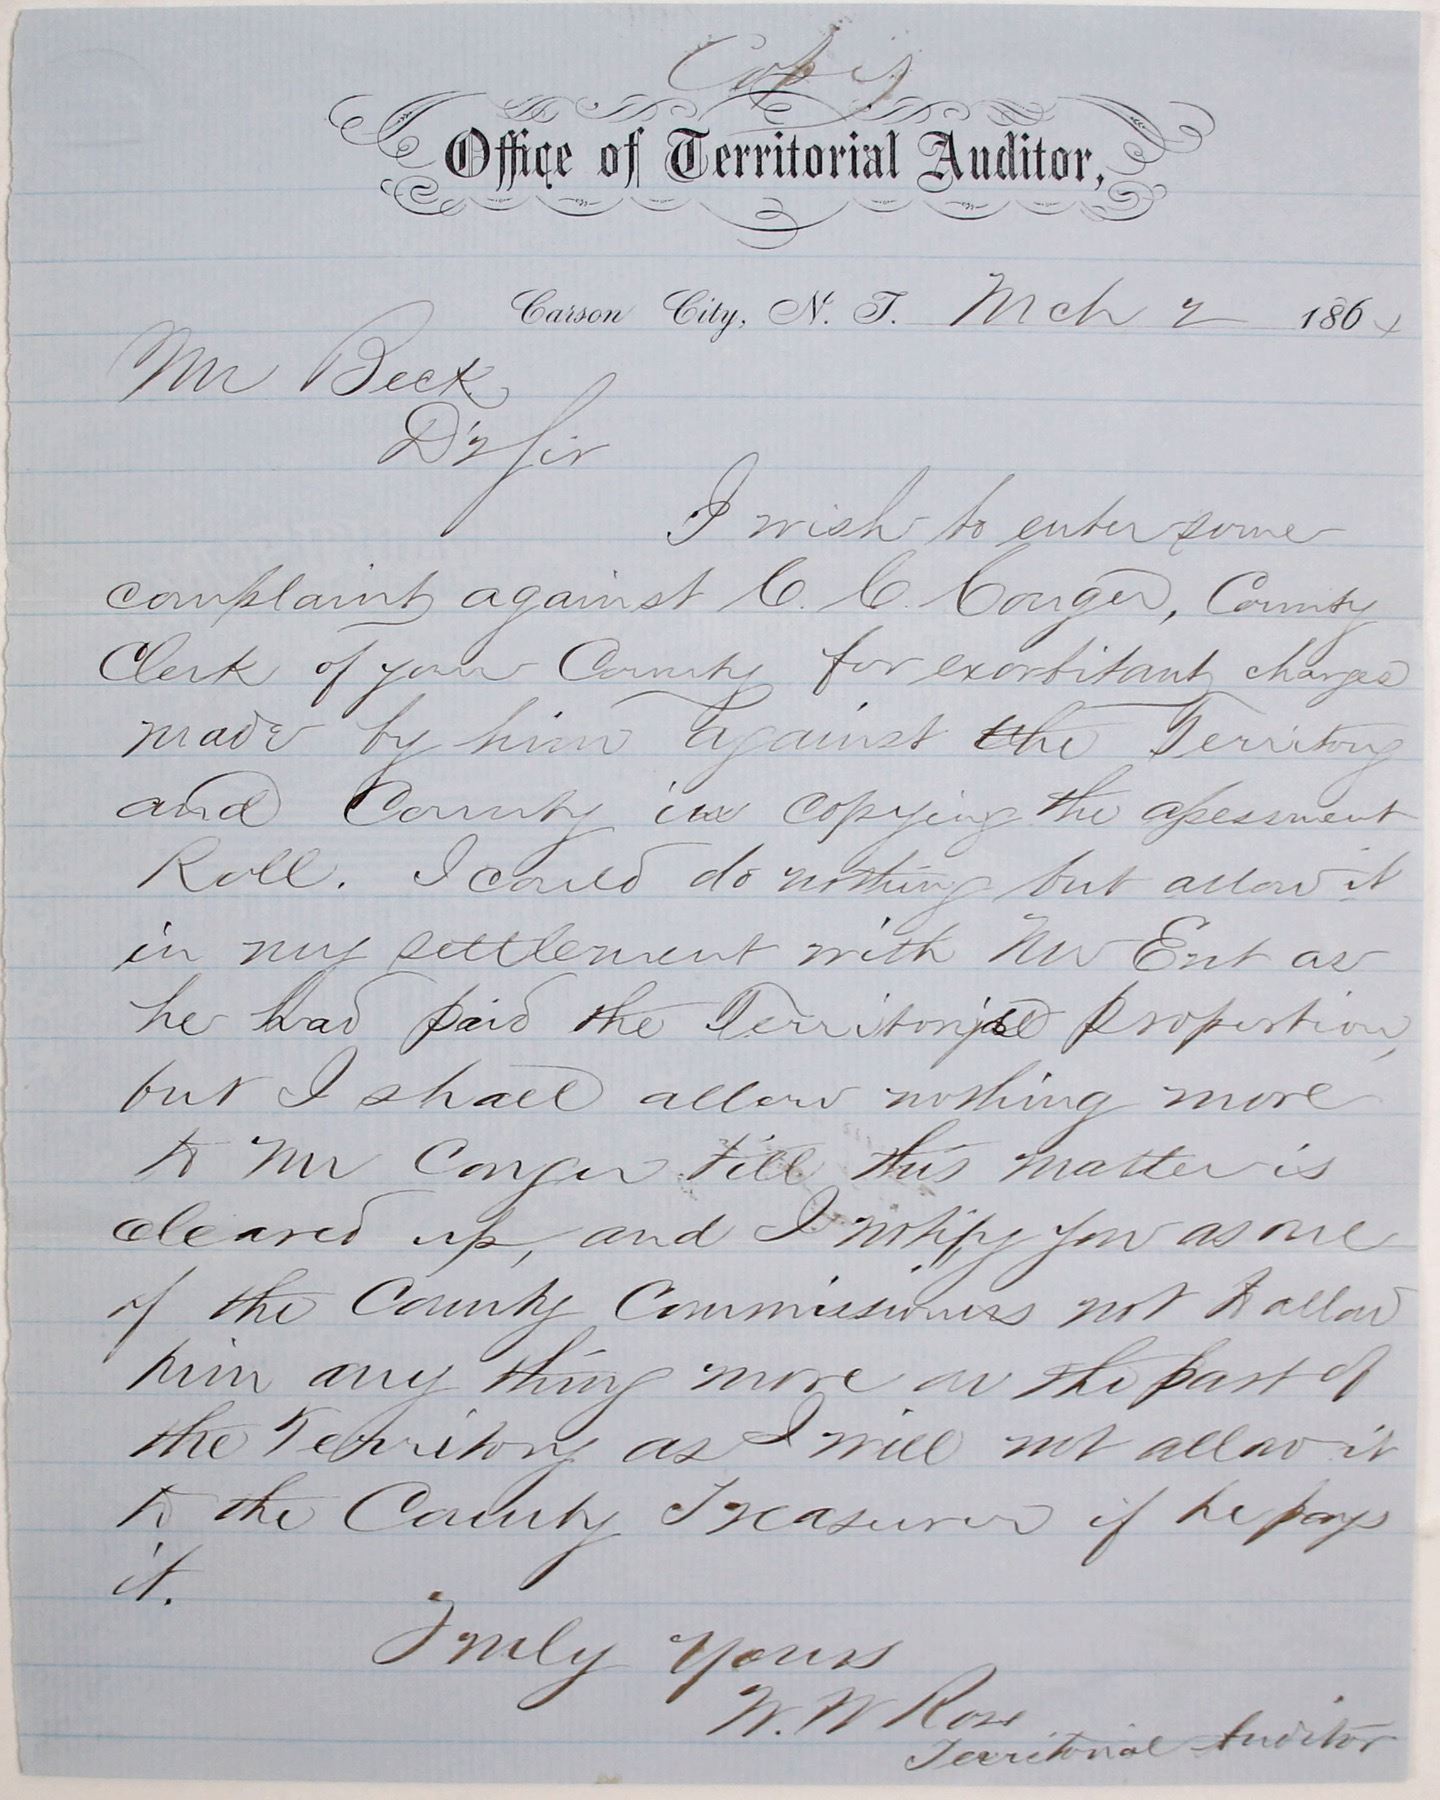 Copy
Office of Territorial Auditor,
Carson City, N. T. Mch 2 1864
Mr Beck
Dr Sir
I wish to enter some
complaint against C. C. Conger, County
Clerk of your County for exorbitant charges
made by him against the Territory
and County in copying the assessment
Roll. I could do nothing but allow it
in my settlement with Mr Ent as
he had paid the Territorial proportion,
but I shall allow nothing more
to Mr Conger till this matter is
cleared up, and I notify you as one
of the County Commissioners not to allow
him any thing more on the part of
the Territory as I will not allow it
to the County Treasurer if he pays
it.
Truly Yours
W. W Ross
Territorial Auditor